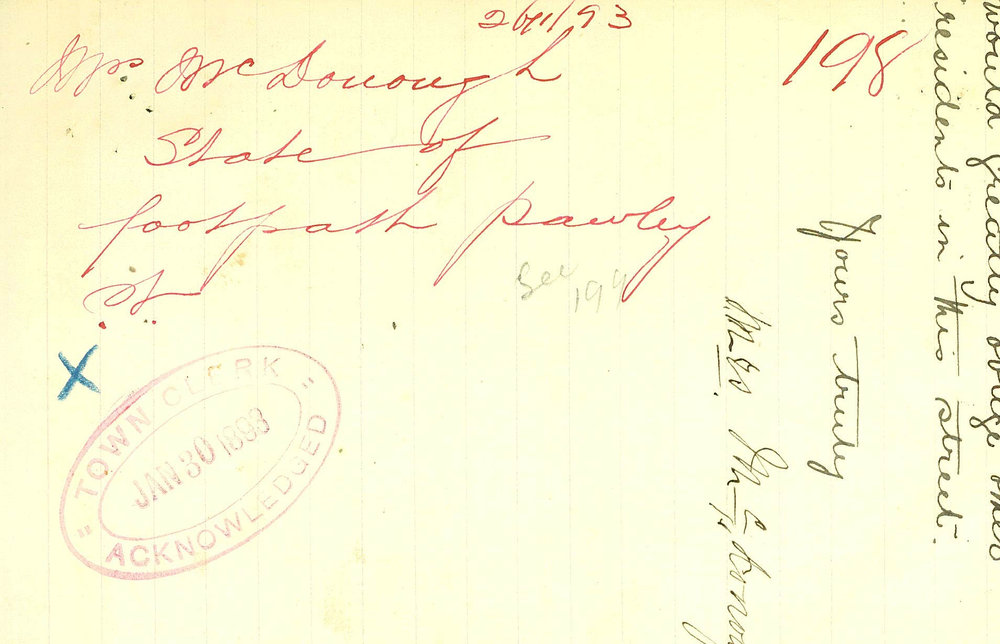 198
Mrs McDonough
State of
footpath Pawley
St.
See
TOWN CLERK
JAN 30 1893
"ACKNOWLEDGED"
would greatly oblige other
residents in this street.
Yours truly
Mrs. McDonou